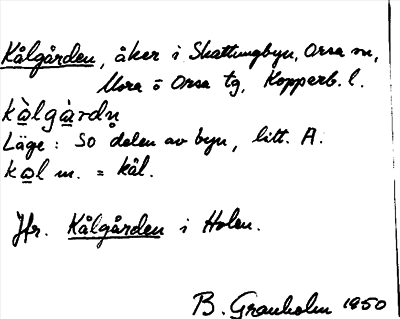 Kålgården, åker i Skattungbyn, Orsa sn,
Mora o Orsa tg, Kopperb. l.
kàlgàrdn̥
Läge: SO delen av byn, litt. A.
kal m. = kål.
Jfr. Kålgården i Holen.
B. Granholm 1950